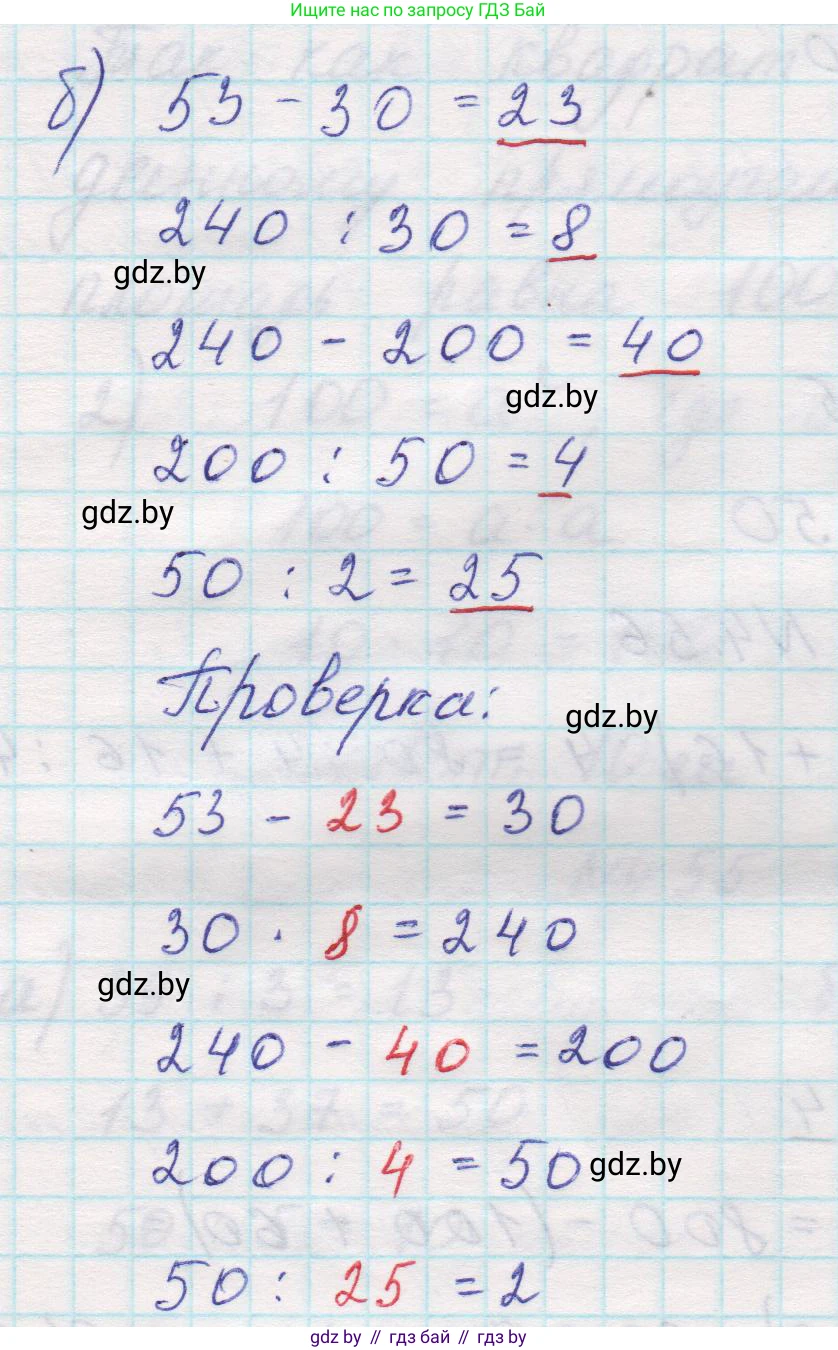 Ищите нас по запросу ГДЗ Бай
б) 53 - 30 = 23
240 : 30 = 8
gdz.by
240 - 200 = 40
gdz.by
200 : 50 = 4
gdz.by
50 : 2 = 25
Проверка:
gdz.by
53 - 23 = 30
30 · 8 = 240
gdz.by
240 - 40 = 200
200 : 4 = 50
gdz.by
50 : 25 = 2
gdz.by // гдз бай // гдз by